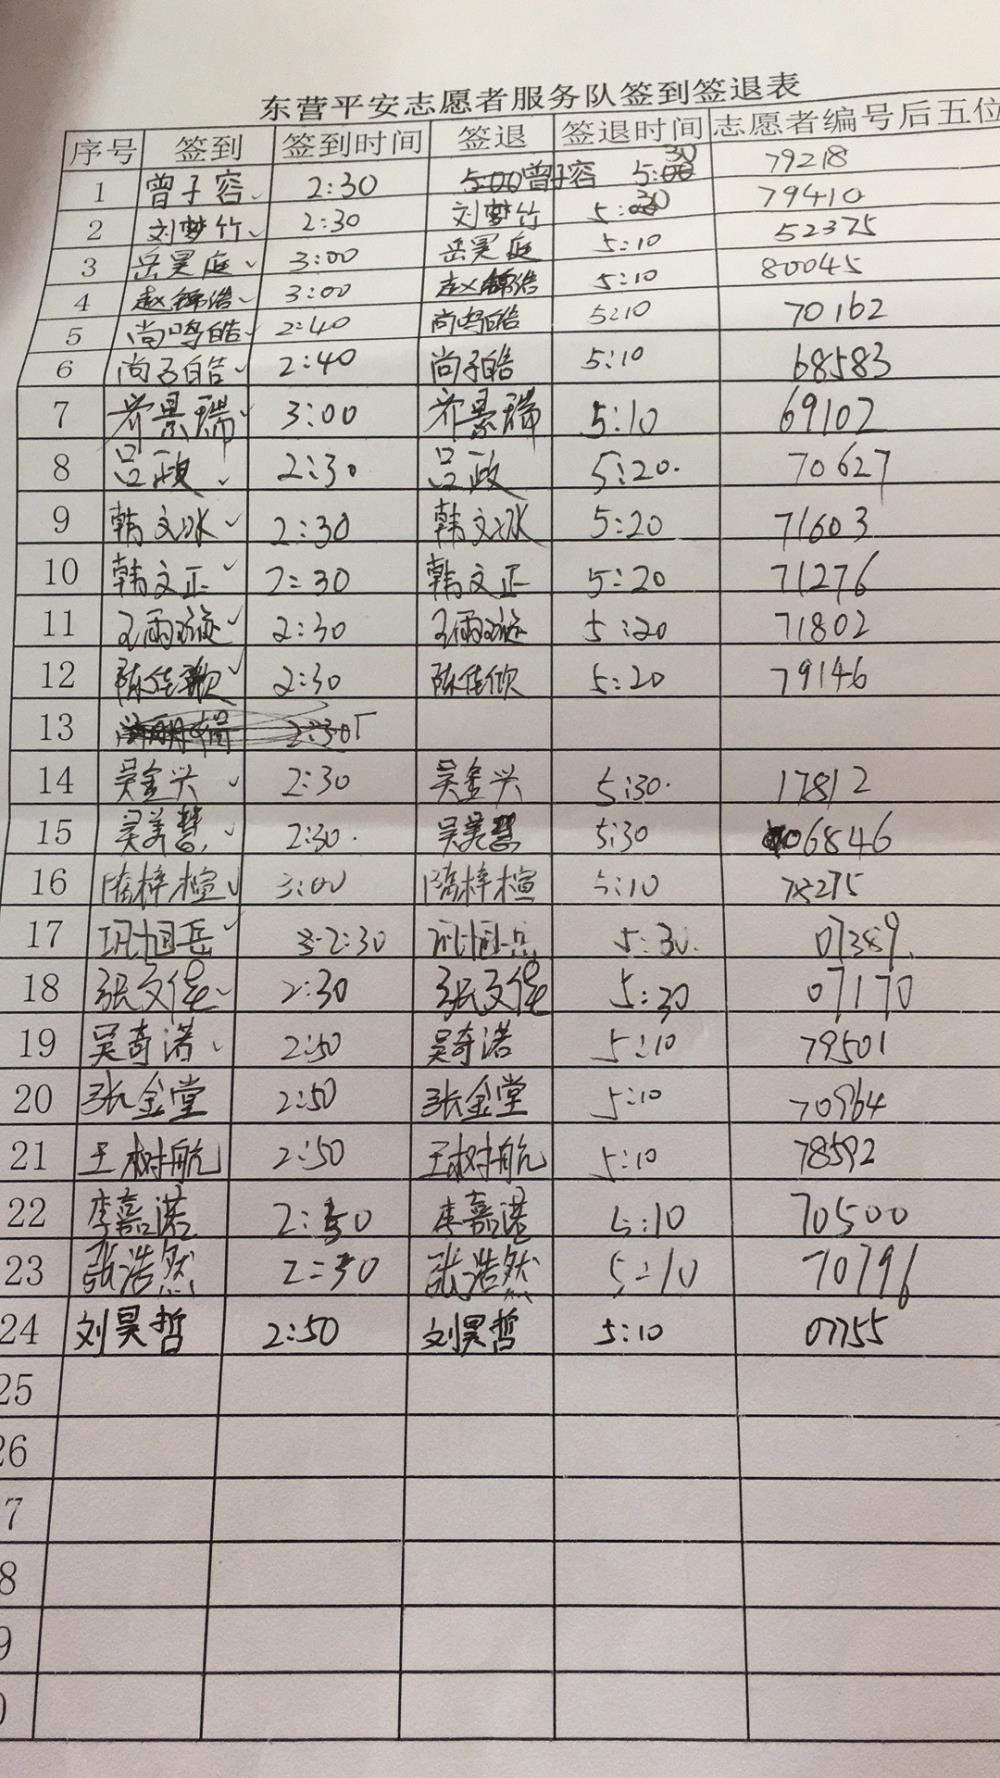 东营平安志愿者服务队签到签退表
序号 签到 签到时间 签退 签退时间 志愿者编号后五位
1 曾子容 2:30 曾子容 5:30 79218
2 刘梦竹 2:30 刘梦竹 5:30 79410
3 岳昊庭 3:00 岳昊庭 5:10 52375
4 赵锦浩 3:00 赵锦浩 5:10 80045
5 尚鸣皓 2:40 尚鸣皓 5:10 70162
6 尚子皓 2:40 尚子皓 5:10 68583
7 齐景瑞 3:00 齐景瑞 5:10 69102
8 吕政 2:30 吕政 5:20 70627
9 韩文冰 2:30 韩文冰 5:20 71603
10 韩文正 2:30 韩文正 5:20 71276
11 2:30 5:20 71802
12 陈佳歌 2:30 陈佳欣 5:20 79146
13
14 吴金兴 2:30 吴金兴 5:30 17812
15 吴美慧 2:30 吴美慧 5:30 06846
16 隋梓楦 3:00 隋梓楦 5:10 78275
17 巩旭岳 2:30 巩旭岳 5:30 01389
18 张文佳 2:30 张文佳 5:30 07170
19 吴奇诺 2:50 吴奇诺 5:10 79501
20 张金堂 2:50 张金堂 5:10 70964
21 王树航 2:50 王树航 5:10 78592
22 李嘉诺 2:50 李嘉诺 5:10 70500
23 张浩然 2:50 张浩然 5:10 70796
24 刘昊哲 2:50 刘昊哲 5:10 07755
25
26
7
8
9
0